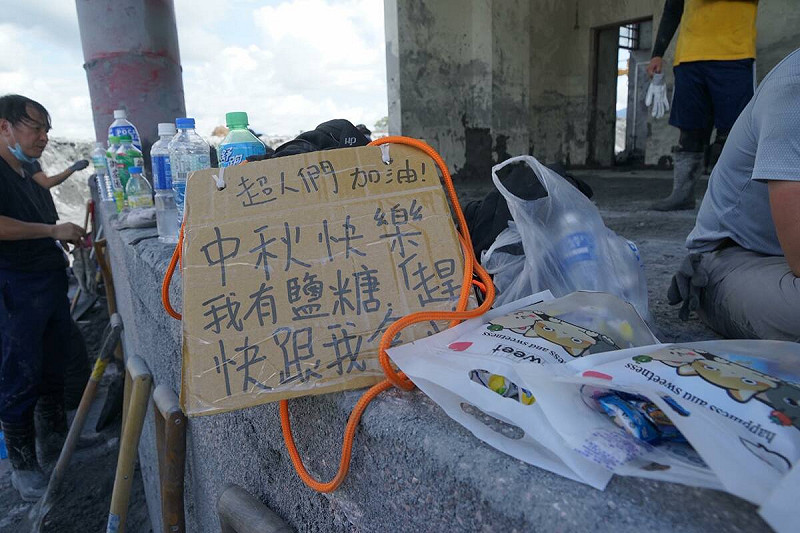 超人們加油!
中秋快樂
我有鹽糖,趕
快跟我
sweet
happiness
and sweetness